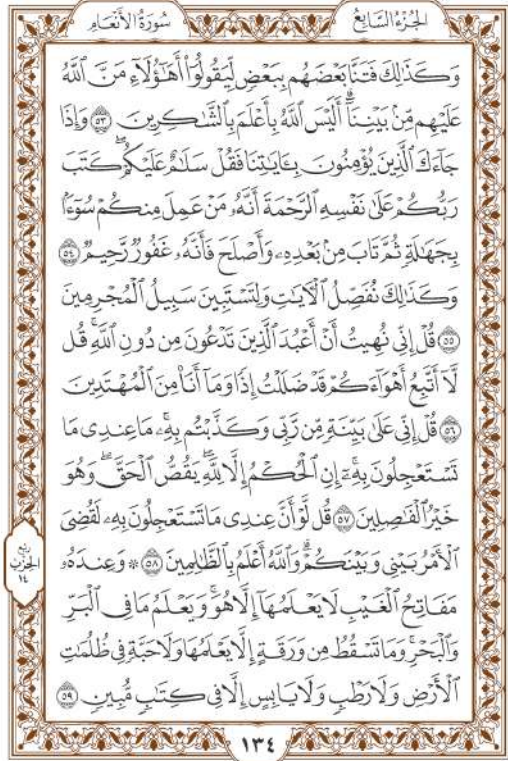 الجزء السابع
سورة الأنعام
وَكَذَٰلِكَ فَتَنَّا بَعْضَهُم بِبَعْضٍ لِّيَقُولُوٓا۟ أَهَٰٓؤُلَآءِ مَنَّ ٱللَّهُ
عَلَيْهِم مِّنۢ بَيْنِنَآ ۗ أَلَيْسَ ٱللَّهُ بِأَعْلَمَ بِٱلشَّٰكِرِينَ ٥٣ وَإِذَا
جَآءَكَ ٱلَّذِينَ يُؤْمِنُونَ بِـَٔايَٰتِنَا فَقُلْ سَلَٰمٌ عَلَيْكُمْ ۖ كَتَبَ
رَبُّكُمْ عَلَىٰ نَفْسِهِ ٱلرَّحْمَةَ ۖ أَنَّهُۥ مَنْ عَمِلَ مِنكُمْ سُوٓءًۢا
بِجَهَٰلَةٍ ثُمَّ تَابَ مِنۢ بَعْدِهِۦ وَأَصْلَحَ فَأَنَّهُۥ غَفُورٌ رَّحِيمٌ ٥٤
وَكَذَٰلِكَ نُفَصِّلُ ٱلْـَٔايَٰتِ وَلِتَسْتَبِينَ سَبِيلُ ٱلْمُجْرِمِينَ
٥٥ قُلْ إِنِّى نُهِيتُ أَنْ أَعْبُدَ ٱلَّذِينَ تَدْعُونَ مِن دُونِ ٱللَّهِ ۚ قُل
لَّآ أَتَّبِعُ أَهْوَآءَكُمْ ۙ قَدْ ضَلَلْتُ إِذًا وَمَآ أَنَا۠ مِنَ ٱلْمُهْتَدِينَ
٥٦ قُلْ إِنِّى عَلَىٰ بَيِّنَةٍ مِّن رَّبِّى وَكَذَّبْتُم بِهِۦ ۚ مَا عِندِى مَا
تَسْتَعْجِلُونَ بِهِۦٓ ۚ إِنِ ٱلْحُكْمُ إِلَّا لِلَّهِ ۖ يَقُصُّ ٱلْحَقَّ ۖ وَهُوَ
خَيْرُ ٱلْفَٰصِلِينَ ٥٧ قُل لَّوْ أَنَّ عِندِى مَا تَسْتَعْجِلُونَ بِهِۦ لَقُضِىَ
ٱلْأَمْرُ بَيْنِى وَبَيْنَكُمْ ۗ وَٱللَّهُ أَعْلَمُ بِٱلظَّٰلِمِينَ ٥٨ ۞ وَعِندَهُۥ
مَفَاتِحُ ٱلْغَيْبِ لَا يَعْلَمُهَآ إِلَّا هُوَ ۚ وَيَعْلَمُ مَا فِى ٱلْبَرِّ
وَٱلْبَحْرِ ۚ وَمَا تَسْقُطُ مِن وَرَقَةٍ إِلَّا يَعْلَمُهَا وَلَا حَبَّةٍ فِى ظُلُمَٰتِ
ٱلْأَرْضِ وَلَا رَطْبٍ وَلَا يَابِسٍ إِلَّا فِى كِتَٰبٍ مُّبِينٍ ٥٩
ربع
الحزب
١٤
١٣٤